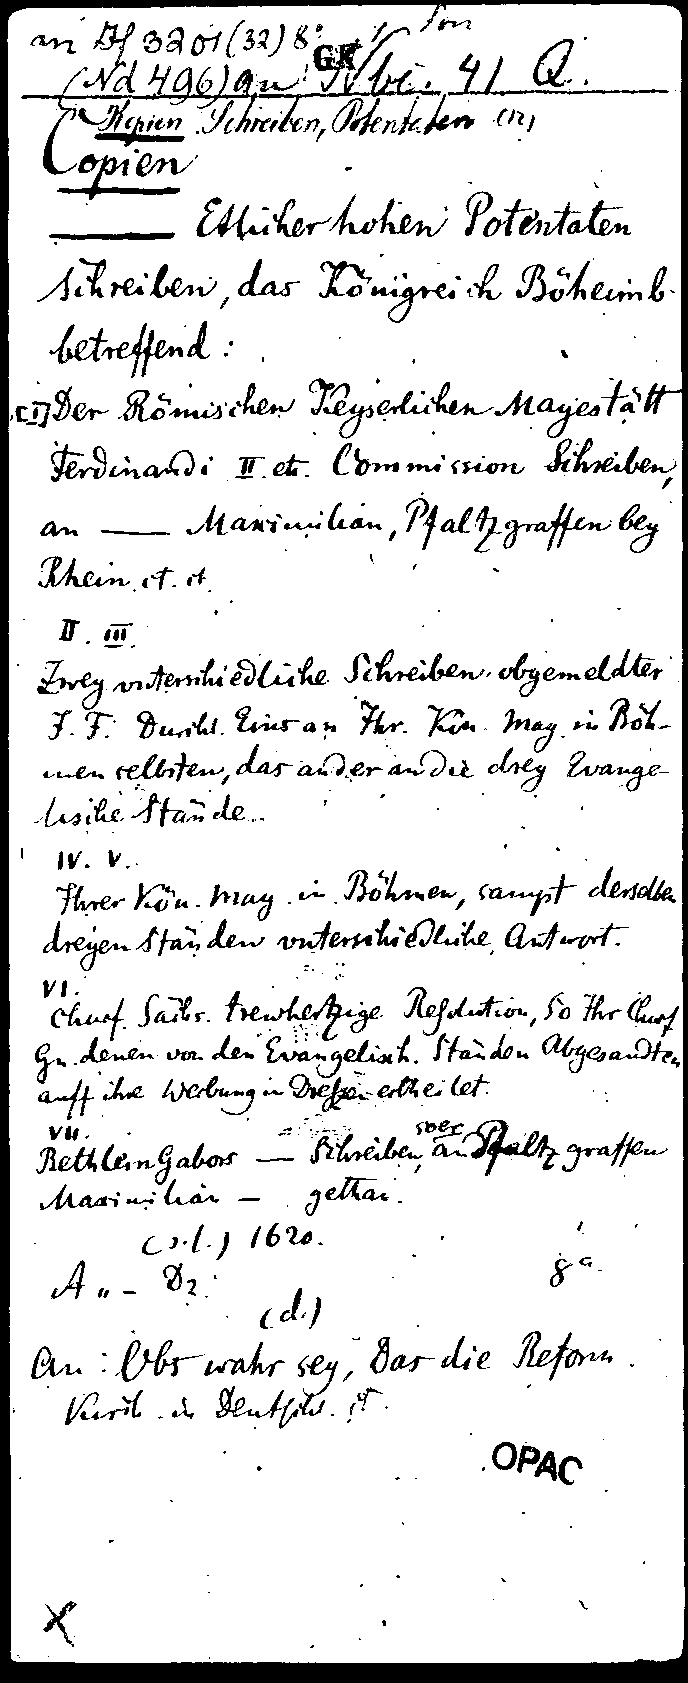 an Df 3201 (32) 8°
GK
(Nd 496) an: 41 Q.
Kopien Schreiben, Potentaten
Copien
——— Etlicher hohen Potentaten
schreiben, das Königreich Böheimb
betreffend:
[I] Der Römischen Keyserlichen Mayestätt
Ferdinandi II. etc. Commission Schreiben,
an —— Maximilian, Pfaltzgraffen bey
Rhein. et. et.
II. III.
Zwey vnterschiedliche Schreiben obgemeldter
J. F. Durchl. Eins an Ihr. Kön. May. in Böh-
men selbsten, das ander an die drey Evange-
lische Stände.
IV. V.
Ihrer Kön. May. in Böhmen, sampt derselben
dreyen Ständen vnterschiedliche Antwort.
VI.
Churf. Sächs. trewhertzige Resolution, so Ihr Churf
Gn. denen von den Evangelisch. Ständen Abgesandten
auff ihre Werbung in Dreßen ertheilet.
VII.
Bethlem Gabors — Schreiben, an Pfaltzgraffen
Maximilian — gethan.
(s.l.) 1620.
A — D2. 8°
(d.)
An: Obs wahr sey, Das die Reform.
Kirch. in Deutschl. et.
OPAC
X